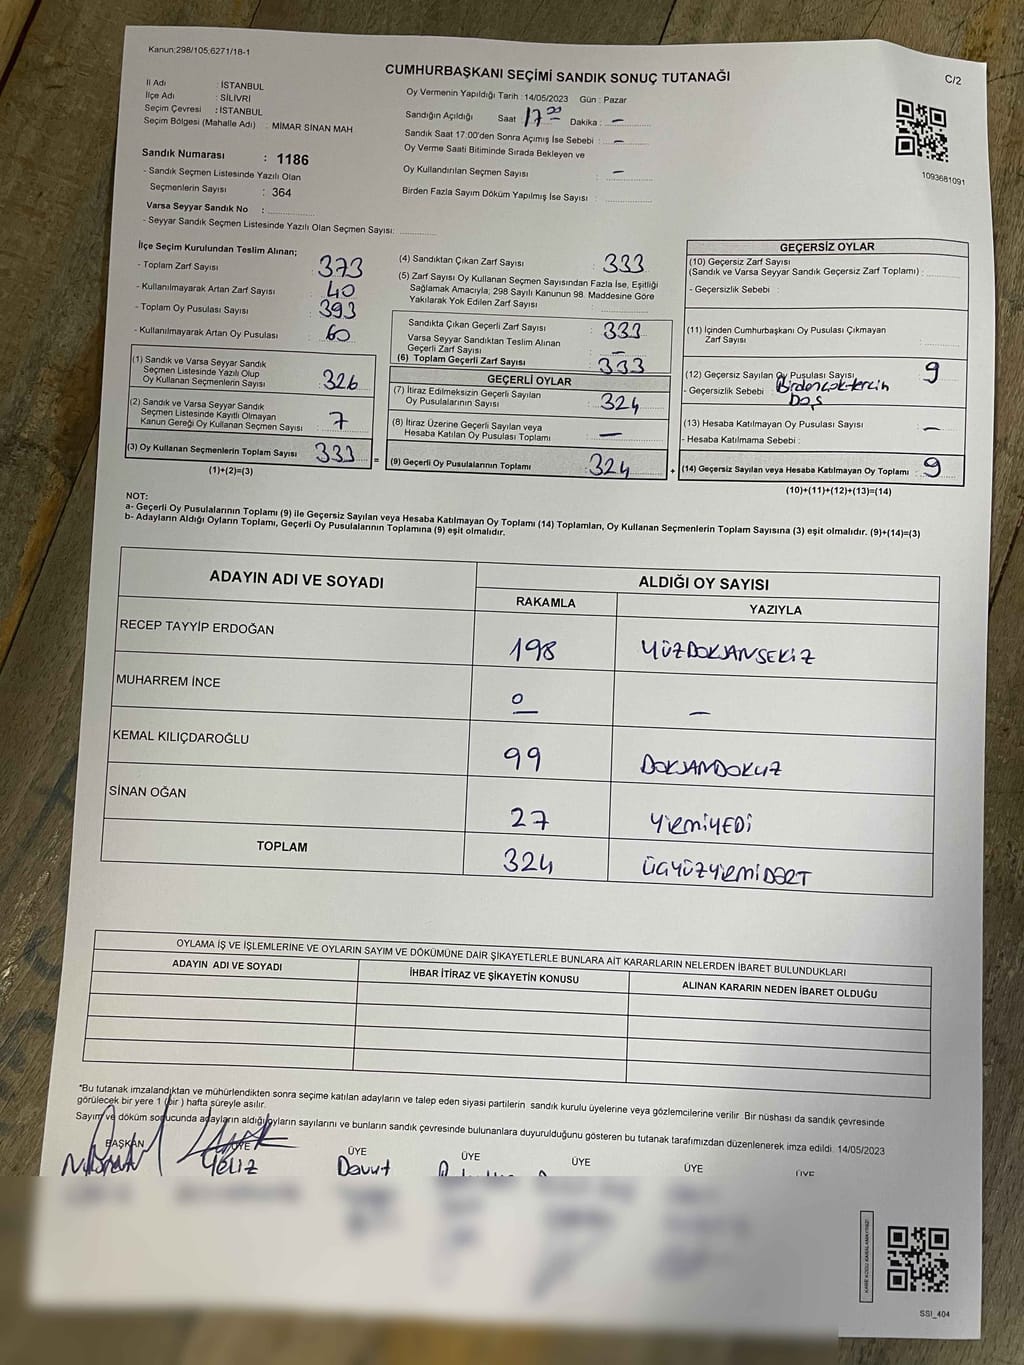 Kanun;298/105,6271/18-1
CUMHURBAŞKANI SEÇİMİ SANDIK SONUÇ TUTANAĞI
C/2
İl Adı : İSTANBUL
İlçe Adı : SİLİVRİ
Seçim Çevresi : İSTANBUL
Seçim Bölgesi (Mahalle Adı) : MİMAR SİNAN MAH
Sandık Numarası : 1186
- Sandık Seçmen Listesinde Yazılı Olan
Seçmenlerin Sayısı : 364
Varsa Seyyar Sandık No :
- Seyyar Sandık Seçmen Listesinde Yazılı Olan Seçmen Sayısı:
Oy Vermenin Yapıldığı Tarih : 14/05/2023 Gün : Pazar
Sandığın Açıldığı Saat 17.00 Dakika : –
Sandık Saat 17:00'den Sonra Açımış İse Sebebi : –
Oy Verme Saati Bitiminde Sırada Bekleyen ve
Oy Kullandırılan Seçmen Sayısı : –
Birden Fazla Sayım Döküm Yapılmış İse Sayısı :
1093681091
İlçe Seçim Kurulundan Teslim Alınan;
- Toplam Zarf Sayısı : 373
- Kullanılmayarak Artan Zarf Sayısı : 40
- Toplam Oy Pusulası Sayısı : 393
- Kullanılmayarak Artan Oy Pusulası : 60
(1) Sandık ve Varsa Seyyar Sandık
Seçmen Listesinde Yazılı Olup
Oy Kullanan Seçmenlerin Sayısı : 326
(2) Sandık ve Varsa Seyyar Sandık
Seçmen Listesinde Kayıtlı Olmayan
Kanun Gereği Oy Kullanan Seçmen Sayısı : 7
(3) Oy Kullanan Seçmenlerin Toplam Sayısı : 333
(1)+(2)=(3)
=
(4) Sandıktan Çıkan Zarf Sayısı : 333
(5) Zarf Sayısı Oy Kullanan Seçmen Sayısından Fazla İse, Eşitliği
Sağlamak Amacıyla; 298 Sayılı Kanunun 98. Maddesine Göre
Yakılarak Yok Edilen Zarf Sayısı :
Sandıkta Çıkan Geçerli Zarf Sayısı : 333
Varsa Seyyar Sandıktan Teslim Alınan
Geçerli Zarf Sayısı : –
(6) Toplam Geçerli Zarf Sayısı : 333
GEÇERLİ OYLAR
(7) İtiraz Edilmeksizin Geçerli Sayılan
Oy Pusulalarının Sayısı : 324
(8) İtiraz Üzerine Geçerli Sayılan veya
Hesaba Katılan Oy Pusulası Toplamı : –
(9) Geçerli Oy Pusulalarının Toplamı : 324
+
GEÇERSİZ OYLAR
(10) Geçersiz Zarf Sayısı
(Sandık ve Varsa Seyyar Sandık Geçersiz Zarf Toplamı) :
- Geçersizlik Sebebi :
(11) İçinden Cumhurbaşkanı Oy Pusulası Çıkmayan
Zarf Sayısı :
(12) Geçersiz Sayılan Oy Pusulası Sayısı : 9
- Geçersizlik Sebebi : Birdençoktercih
Boş
(13) Hesaba Katılmayan Oy Pusulası Sayısı : –
- Hesaba Katılmama Sebebi :
(14) Geçersiz Sayılan veya Hesaba Katılmayan Oy Toplamı : 9
(10)+(11)+(12)+(13)=(14)
NOT:
a- Geçerli Oy Pusulalarının Toplamı (9) ile Geçersiz Sayılan veya Hesaba Katılmayan Oy Toplamı (14) Toplamları, Oy Kullanan Seçmenlerin Toplam Sayısına (3) eşit olmalıdır. (9)+(14)=(3)
b- Adayların Aldığı Oyların Toplamı, Geçerli Oy Pusulalarının Toplamına (9) eşit olmalıdır.
ADAYIN ADI VE SOYADI
ALDIĞI OY SAYISI
RAKAMLA YAZIYLA
RECEP TAYYİP ERDOĞAN 198 YÜZDOKSANSEKİZ
MUHARREM İNCE 0 –
KEMAL KILIÇDAROĞLU 99 DOKSANDOKUZ
SİNAN OĞAN 27 YİRMİYEDİ
TOPLAM 324 ÜÇYÜZYİRMİDÖRT
OYLAMA İŞ VE İŞLEMLERİNE VE OYLARIN SAYIM VE DÖKÜMÜNE DAİR ŞİKAYETLERLE BUNLARA AİT KARARLARIN NELERDEN İBARET BULUNDUKLARI
ADAYIN ADI VE SOYADI İHBAR İTİRAZ VE ŞİKAYETİN KONUSU ALINAN KARARIN NEDEN İBARET OLDUĞU
*Bu tutanak imzalandıktan ve mühürlendikten sonra seçime katılan adayların ve talep eden siyasi partilerin sandık kurulu üyelerine veya gözlemcilerine verilir. Bir nüshası da sandık çevresinde
görülecek bir yere 1 (bir) hafta süreyle asılır.
Sayım ve döküm sonucunda adayların aldığı oyların sayılarını ve bunların sandık çevresinde bulunanlara duyurulduğunu gösteren bu tutanak tarafımızdan düzenlenerek imza edildi. 14/05/2023
BAŞKAN ÜYE ÜYE ÜYE ÜYE ÜYE ÜYE
Yeliz Davut
SSI_404